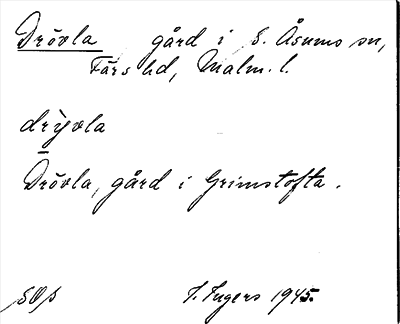 Drövla gård i S. Åsums sn,
Färs hd, Malm. l.
drỳvla
Drövla, gård i Grimstofta.
SOÞ I. Ingers 1945.